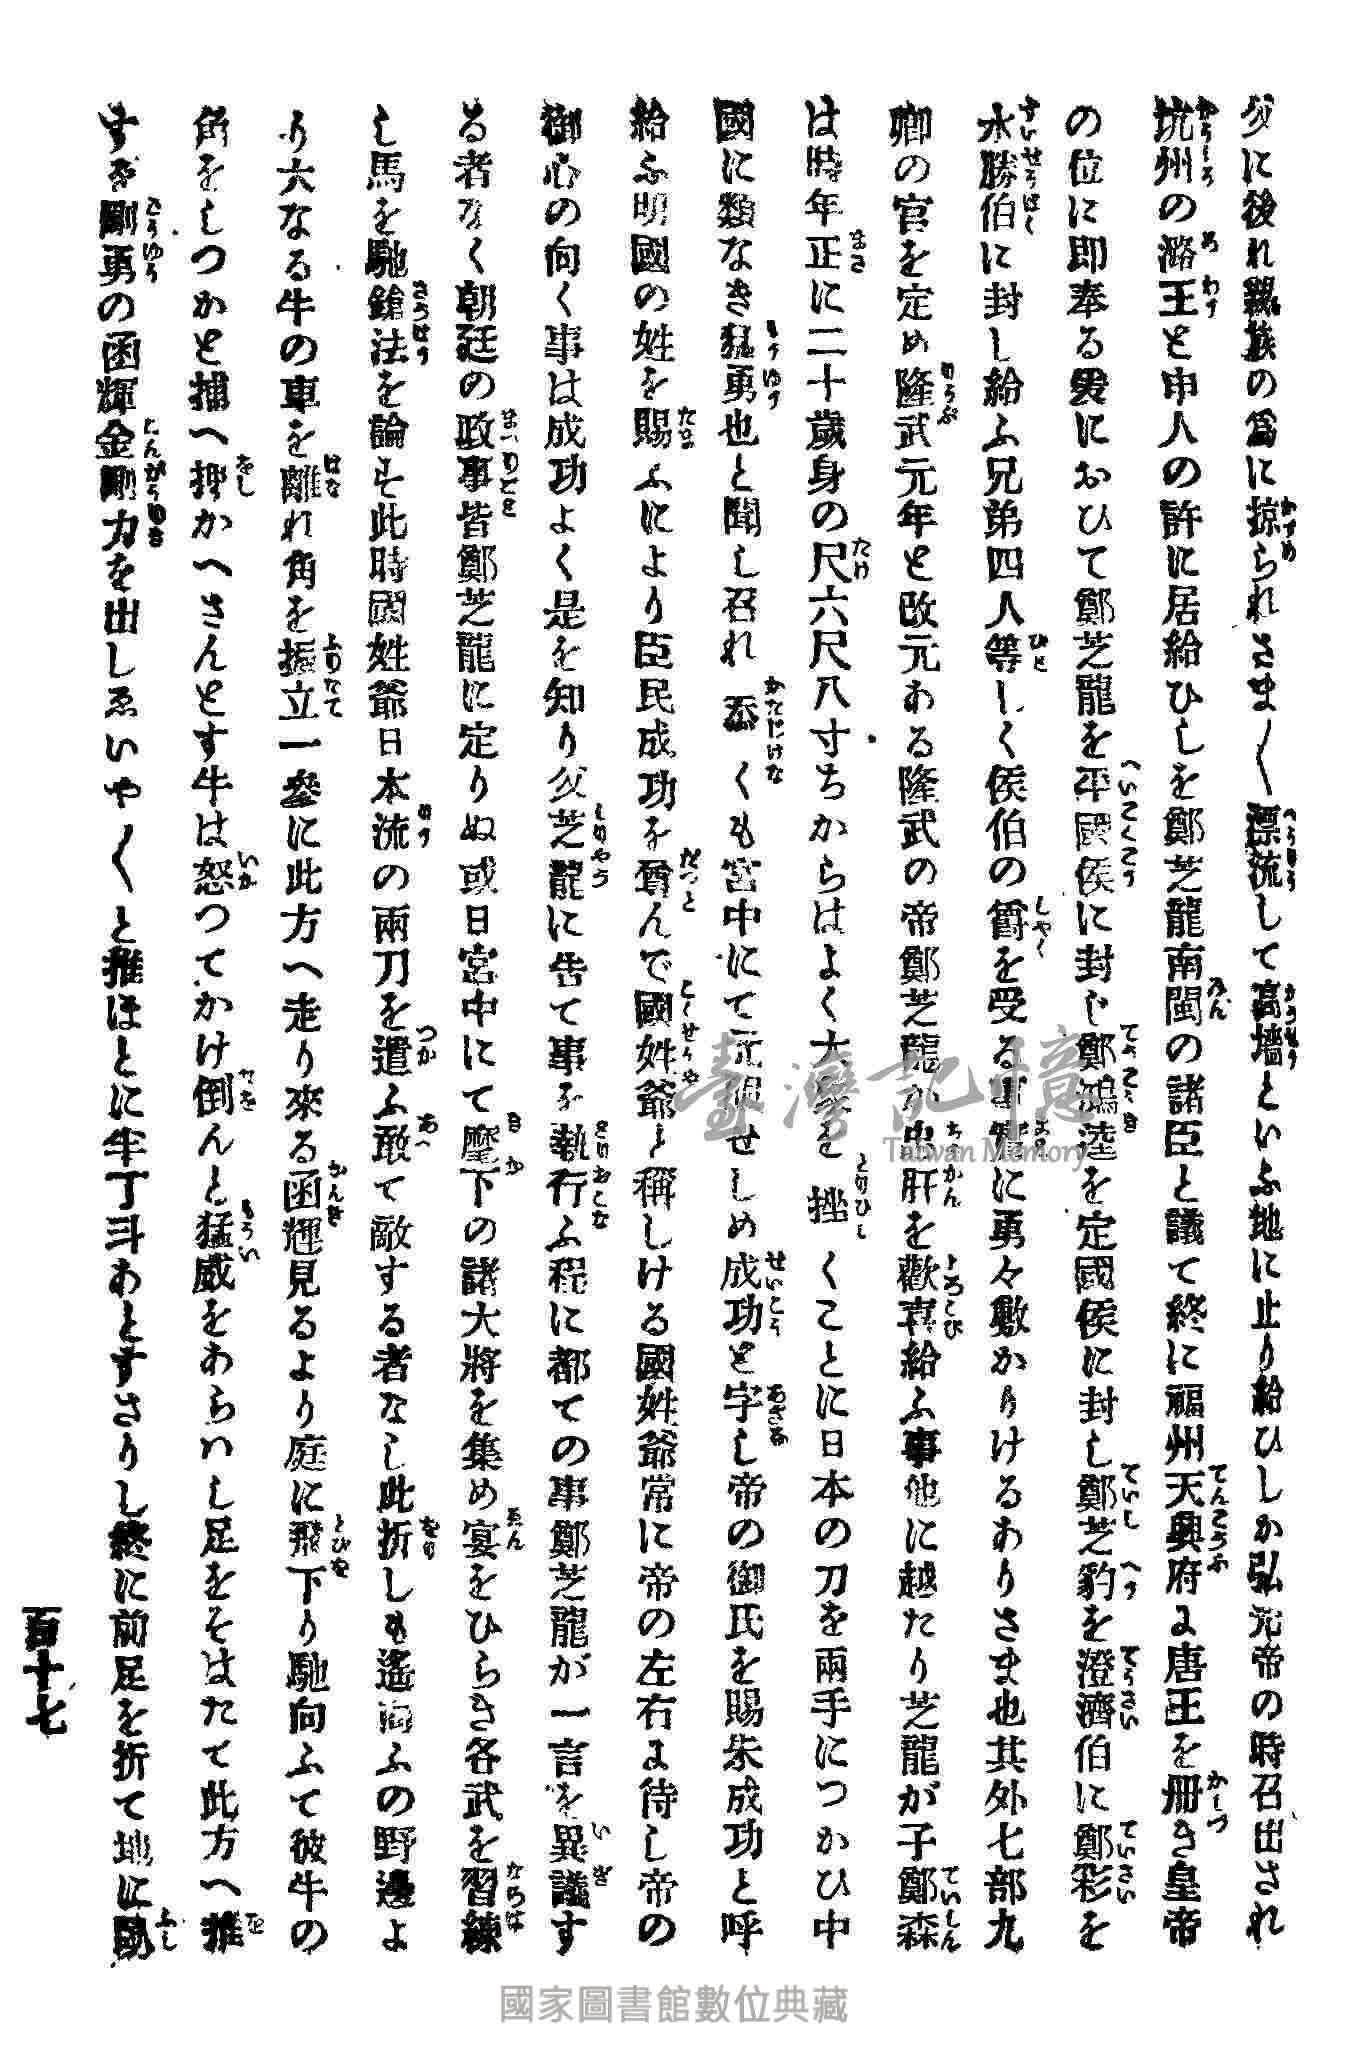 父に後れ親族の爲に掠られさま〱漂流して高墻といふ地に止り給ひしか弘光帝の時召出され
杭州の潞王と申人の許に居給ひしを鄭芝龍南閩の諸臣と議て終に福州天興府に唐王を冊き皇帝
の位に即奉る爰におひて鄭芝龍を平國侯に封じ鄭鴻逵を定國侯に封し鄭芝豹を澄濟伯に鄭彩を
水勝伯に封し給ふ兄弟四人等しく侯伯の爵を受る事寔に勇々敷かりけるありさま也其外七部九
卿の官を定め隆武元年と改元ある隆武の帝鄭芝龍か忠肝を歡喜給ふ事他に越たり芝龍が子鄭森
は時年正に二十歳身の尺六尺八寸ちからはよく大象を挫くことに日本の刀を兩手につかひ中
國に類なき猛勇也と聞し召れ忝くも宮中にて元服せしめ成功と字し帝の御氏を賜朱成功と呼
給ふ明國の姓を賜ふにより臣民成功を尊んで國姓爺と稱しける國姓爺常に帝の左右に待し帝の
御心の向く事は成功よく是を知り父芝龍に告て事を執行ふ程に都ての事鄭芝龍が一言を異議す
る者なく朝廷の政事皆鄭芝龍に定りぬ或日宮中にて麾下の諸大將を集め宴をひらき各武を習練
し馬を馳鎗法を論ず此時國姓爺日本流の兩刀を遣ふ敢て敵する者なし此折しも遙向ふの野邊よ
り大なる牛の車を離れ角を振立一參に此方へ走り來る函輝見るより庭に飛下り馳向ふて彼牛の
角をしつかと捕へ押かへさんとす牛は怒つてかけ倒んと猛威をあらハし足をそはたて此方へ推
すを剛勇の函輝金剛力を出しゑいや〱と推ほとに牛丁斗あとすさりし終に前足を折て地に臥
百十七
臺灣記憶
Taiwan Memory
國家圖書館數位典藏